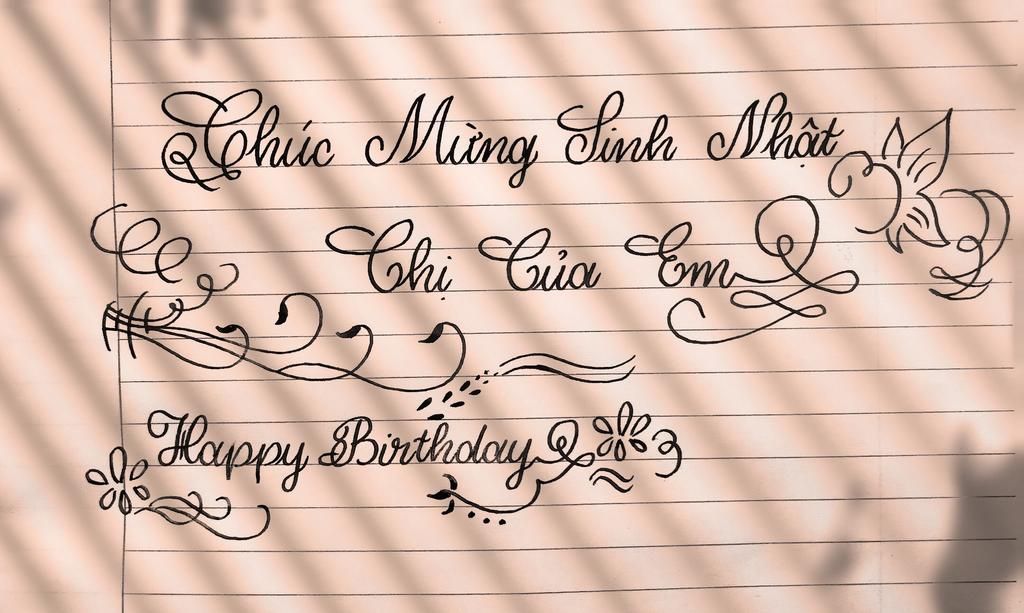 Chúc Mừng Sinh Nhật
Chị Của Em
Happy Birthday